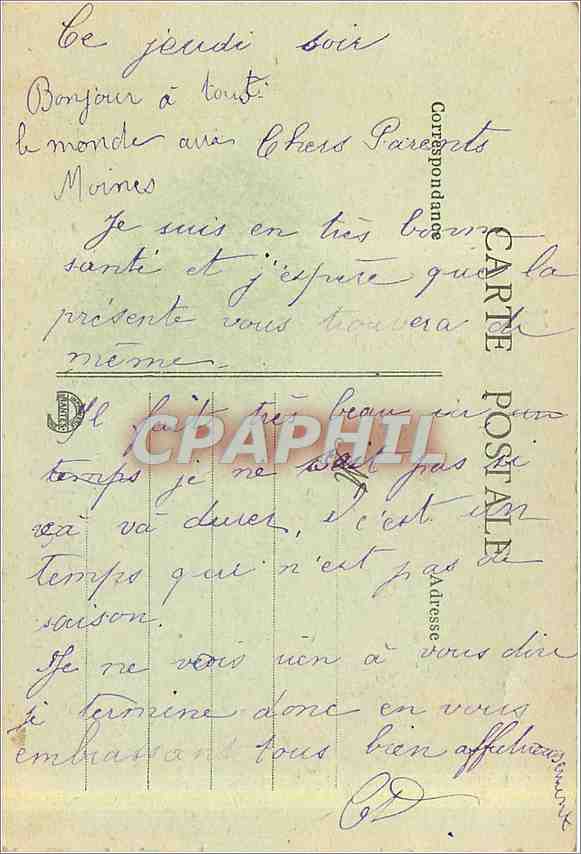 Ce jeudi soir
Bonjour à tout
le monde aux Chers Parents
Moines
Je suis en très bonne
santé et j'espère que la
présente vous trouvera de
même.
Il fait très beau ici un
temps je ne sait pas si
ça và durer, c'est un
temps que n'est pas de
saison.
Je ne vois rien à vous dire
je termine donc en vous
embrassant tous bien affectueusement
CD
Correspondance
CARTE POSTALE
Adresse
NANTES
CPAPHIL